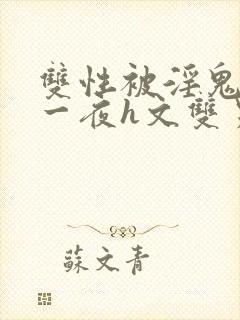 雙性被淫鬼
一夜h文雙
蘇文青